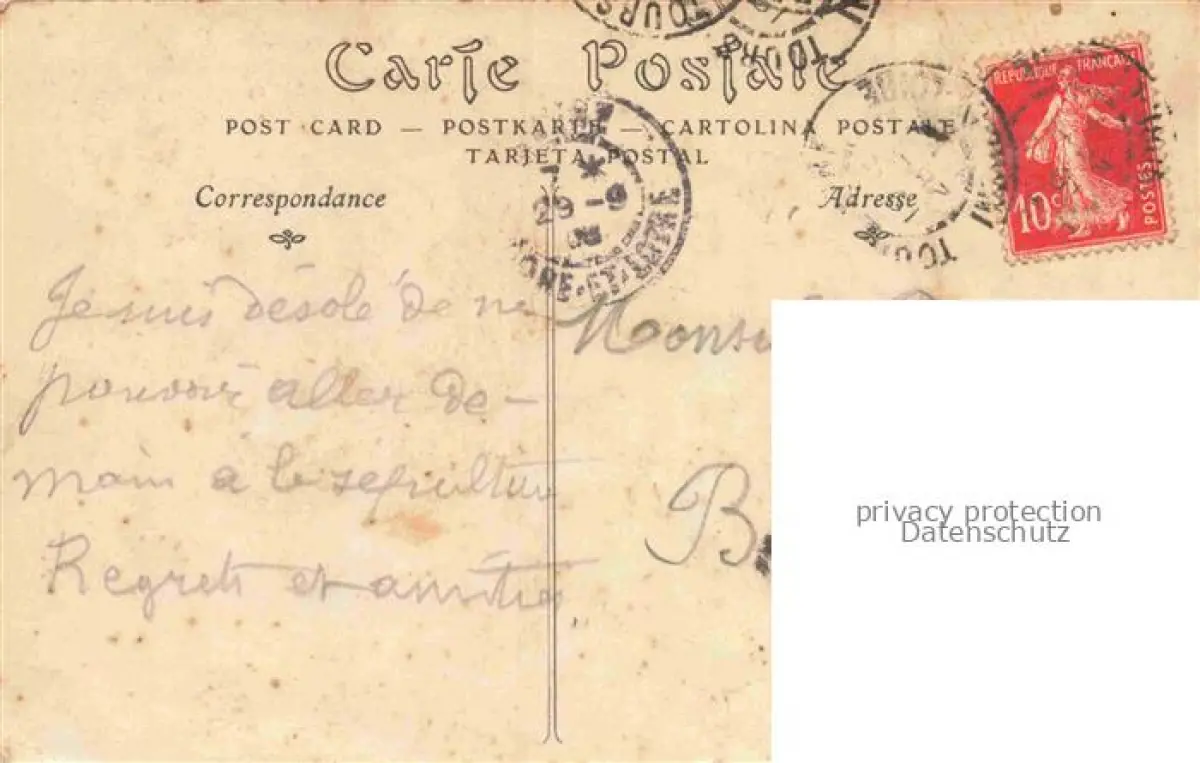 Carte Postale
POST CARD — POSTKARTE — CARTOLINA POSTALE
TARJETA POSTAL
Correspondance
Adresse
REPUBLIQUE FRANÇAISE
10 c
POSTES
TOURS
TOURS
29 - 9
ET-LOIRE
Je suis désolé de ne
pouvoir aller de-
main à la sépulture
Regrets et amitiés
privacy protection
Datenschutz